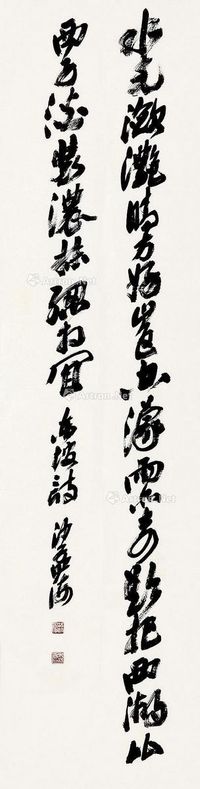 水光瀲灩晴方好山色空濛雨亦奇欲把西湖比
西子淡妝濃抹總相宜 東坡詩 沙孟海
Artron.Net